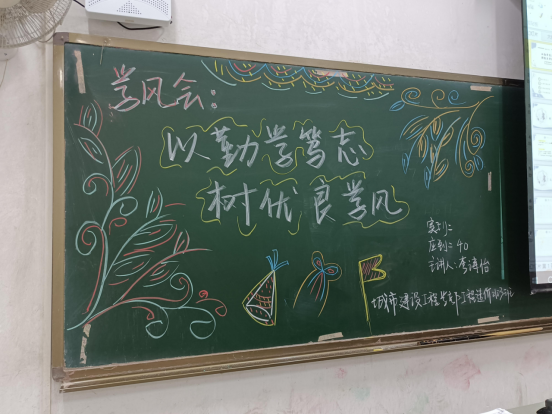 学风会：
以勤学笃志
树优良学风
实到：
应到：40
主讲人：李涛怡
城市建设工程学部工程造价